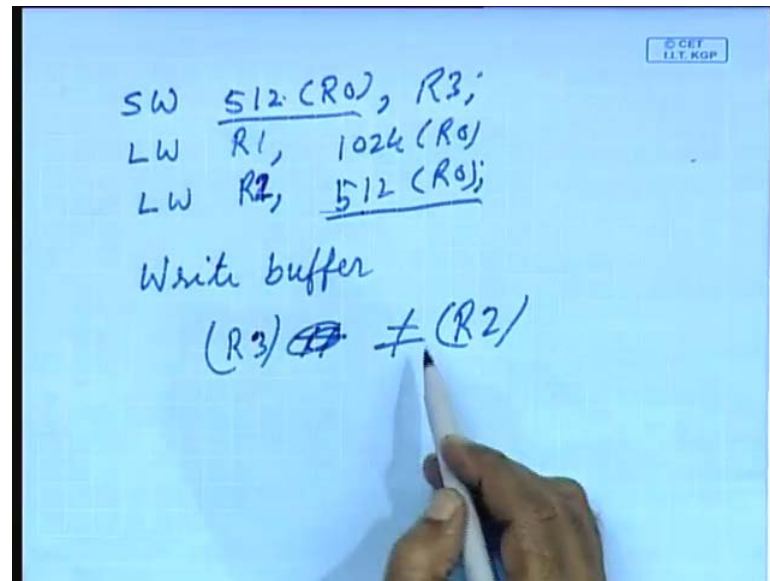 © CET
I.I.T. KGP
SW 512 (R0), R3;
LW R1, 1024 (R0)
LW R2, 512 (R0);
Write buffer
(R3) ≠ (R2)